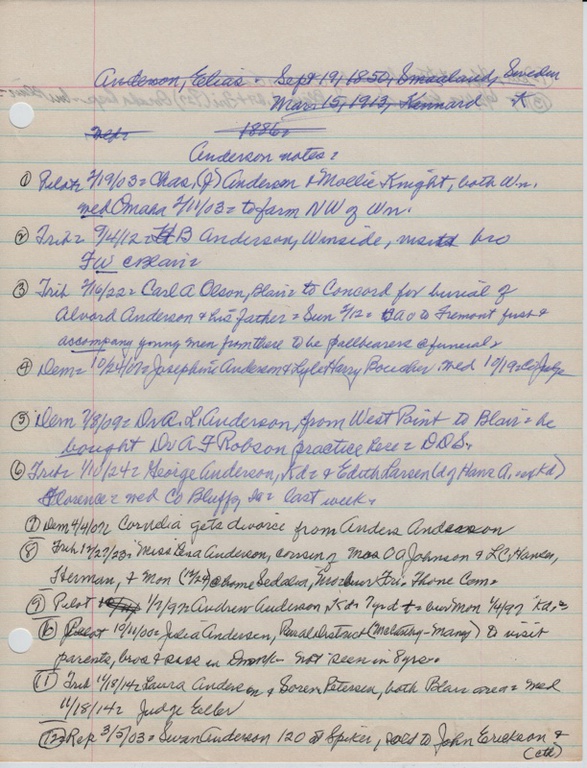 Anderson, Elias - Sept 19, 1850, Smaaland, Sweden
Mar 15, 1913, Kennard
1886=
Anderson notes=
① Pilot= 2/19/03= Chas. (J) Anderson & Mollie Knight, both Wn.
med Omaha 2/11/03= to farm NW of Wn.
② Trib= 9/4/12= H B Anderson, Winside, visitd bro
F W @ Blair=
③ Trib 2/16/22= Carl A Olson, Blair= to Concord for burial of
Alvord Anderson & his father= Sun 2/12= CAO to Fremont first &
accompany young men from there to be pallbearers @ funeral
④ Dem= 10/24/07= Josephine Anderson & Lyle Harry Boucher med 10/19=
⑤ Dem 7/8/09= Dr A. L. Anderson, from West Point to Blair= he
bought Dr A F Robson practice here= DDS.
⑥ Trib= 1/10/24= George Anderson, Kd= & Edith Larsen (dg Hans A. Kd)
Florence= med Co Bluffs Ia= last week.
⑦ Dem 4/4/07 Cornelia gets divorce from Anders Anderson
⑧ Trib 12/27/23= Miss Anderson, cousin of Mrs O A Johnson & L C Hansen,
Herman, & Mon (12/24) @ home Sedalia, Mo= bur Fri. Phone Com=
⑨ Pilot 1/7/97= Andrew Anderson, Kd= 7 yrd = bur Mon 1/4/97 Kd.=
⑩ Pilot 10/11/00= Julia Andersen, Rural District (McCarthy-Maney) to visit
parents, bros & siss in Dnmk- not seen in 8 yrs.
⑪ Trib 11/18/14= Laura Anderson & Soren Petersen, both Blair area= med
11/18/14= Judge Eller
⑫ Rep 3/5/03= Swan Anderson 120 @ Spiker, sold to John Erickson &
(ctd)